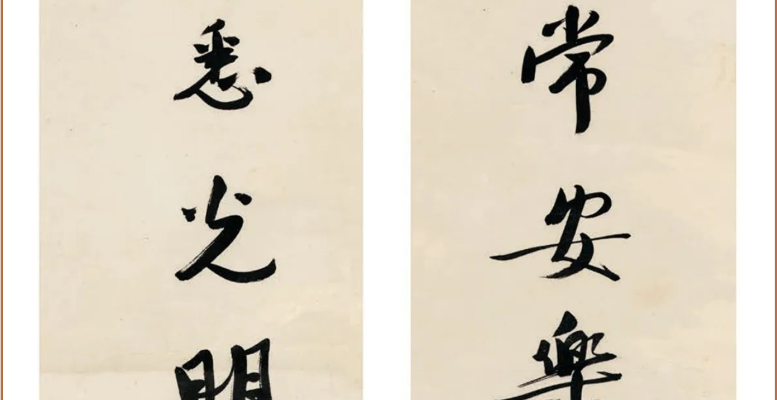 常安樂
悉光明